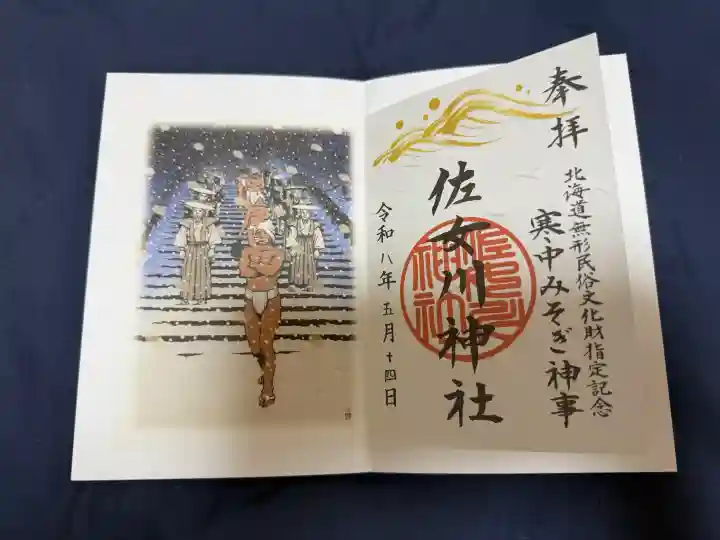 奉拝
北海道無形民俗文化財指定記念
寒中みそぎ神事
佐女川神社
令和八年五月十四日